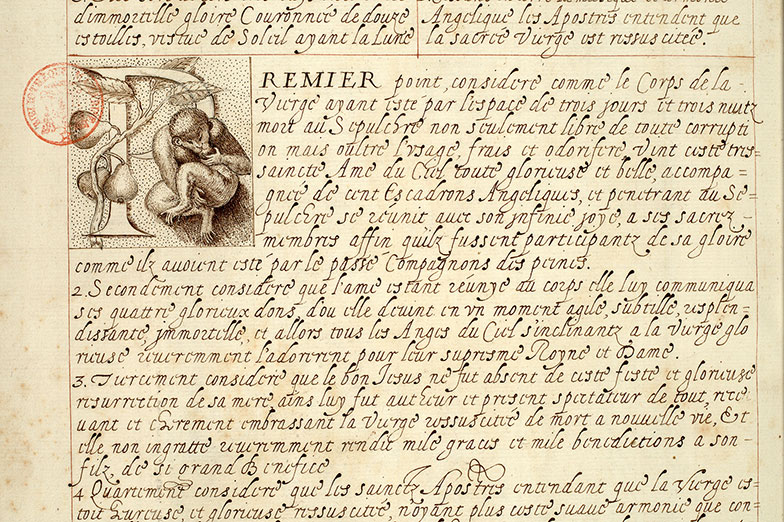 d'immortelle gloire Couronneé de douze
estoilles, vistue de Soleil ayant la Lune
Angelique les Apostres entendent que
la sacreé Vierge est ressuscitée.
PREMIER point, considere comme le Corps de la
Vierge ayant esté par l'espace de trois jours et trois nuitz
mort au Sepulchre non seulement libre de toute corrupti
on mais oultre l'usage, frais et odorifere, vint ceste tres
saincte Ame du Ciel toute glorieuse et belle, accompa =
gneé de cent Escadrons Angeliques, et penetrant au Se=
pulchre se reünit avec son infinie joye, a ses sacrez
membres affin qu'ilz fussent participantz de sa gloire
comme ilz avoient esté par le passé Compagnons des peines.
2. Secondement considere que l'ame estant reünye au corps elle luy communiqua
ses quattre glorieux dons, d'ou elle devint en un moment agile, subtille, resplen-
dissante, jmmortelle, et allors tous les Anges du Ciel s'inclinantz a la Vierge glo
rieuse reveremment l'adorerent pour leur supreme Royne et Dame.
3. Tiercement considere que le bon Jesus ne fut absent de ceste feste et glorieuse
resurrection de sa mere, ains luy fut autheur et present spectateur de tout, rece
vant et cherement embrassant la Vierge ressuscitée de mort a nouvelle vie, Et
elle non ingratte reveremment rendit mile graces et mile benedictions a son-
filz, de si grand Benefice
4 Quartement considere que les sainctz Apostres entendant que la Vierge es-
toit heureuse, et glorieuse ressuscitée, n'oyant plus ceste suave armonie que con-